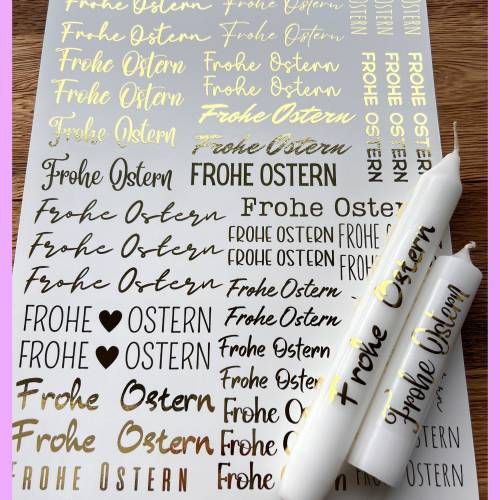 Frohe Ostern Frohe Ostern
Frohe Ostern Frohe Ostern
Frohe Ostern Frohe Ostern
Frohe Ostern Frohe Ostern
Frohe Ostern
Frohe Ostern Frohe Ostern
Frohe Ostern FROHE OSTERN
Frohe Ostern Frohe Ostern
FROHE OSTERN FROHE
Frohe Ostern FROHE OSTERN FROHE
Frohe Ostern Frohe Ostern
FROHE ♥ OSTERN Frohe Ostern
FROHE ♥ OSTERN Frohe Ostern
Frohe Ostern Frohe
Frohe Ostern Frohe
FROHE OSTERN Frohe
OSTERN
OSTERN
OSTERN
FROHE OSTERN
FROHE OSTERN
FROHE OSTERN
Frohe Ostern
Frohe Ostern